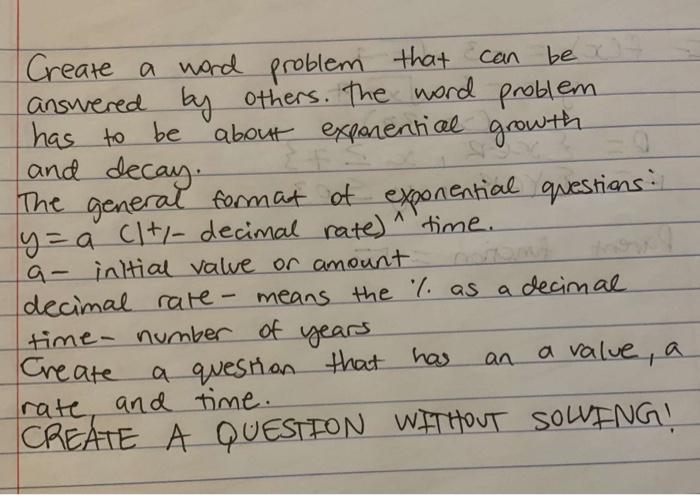 Create a word problem that can be
answered by others. The word problem
has to be about exponential growth
and decay.
The general format of exponential questions:
y = a (1+/- decimal rate) ^ time.
a - initial value or amount
decimal rate - means the % as a decimal
time - number of years
Create a question that has an a value, a
rate, and time.
CREATE A QUESTION WITHOUT SOLVING!